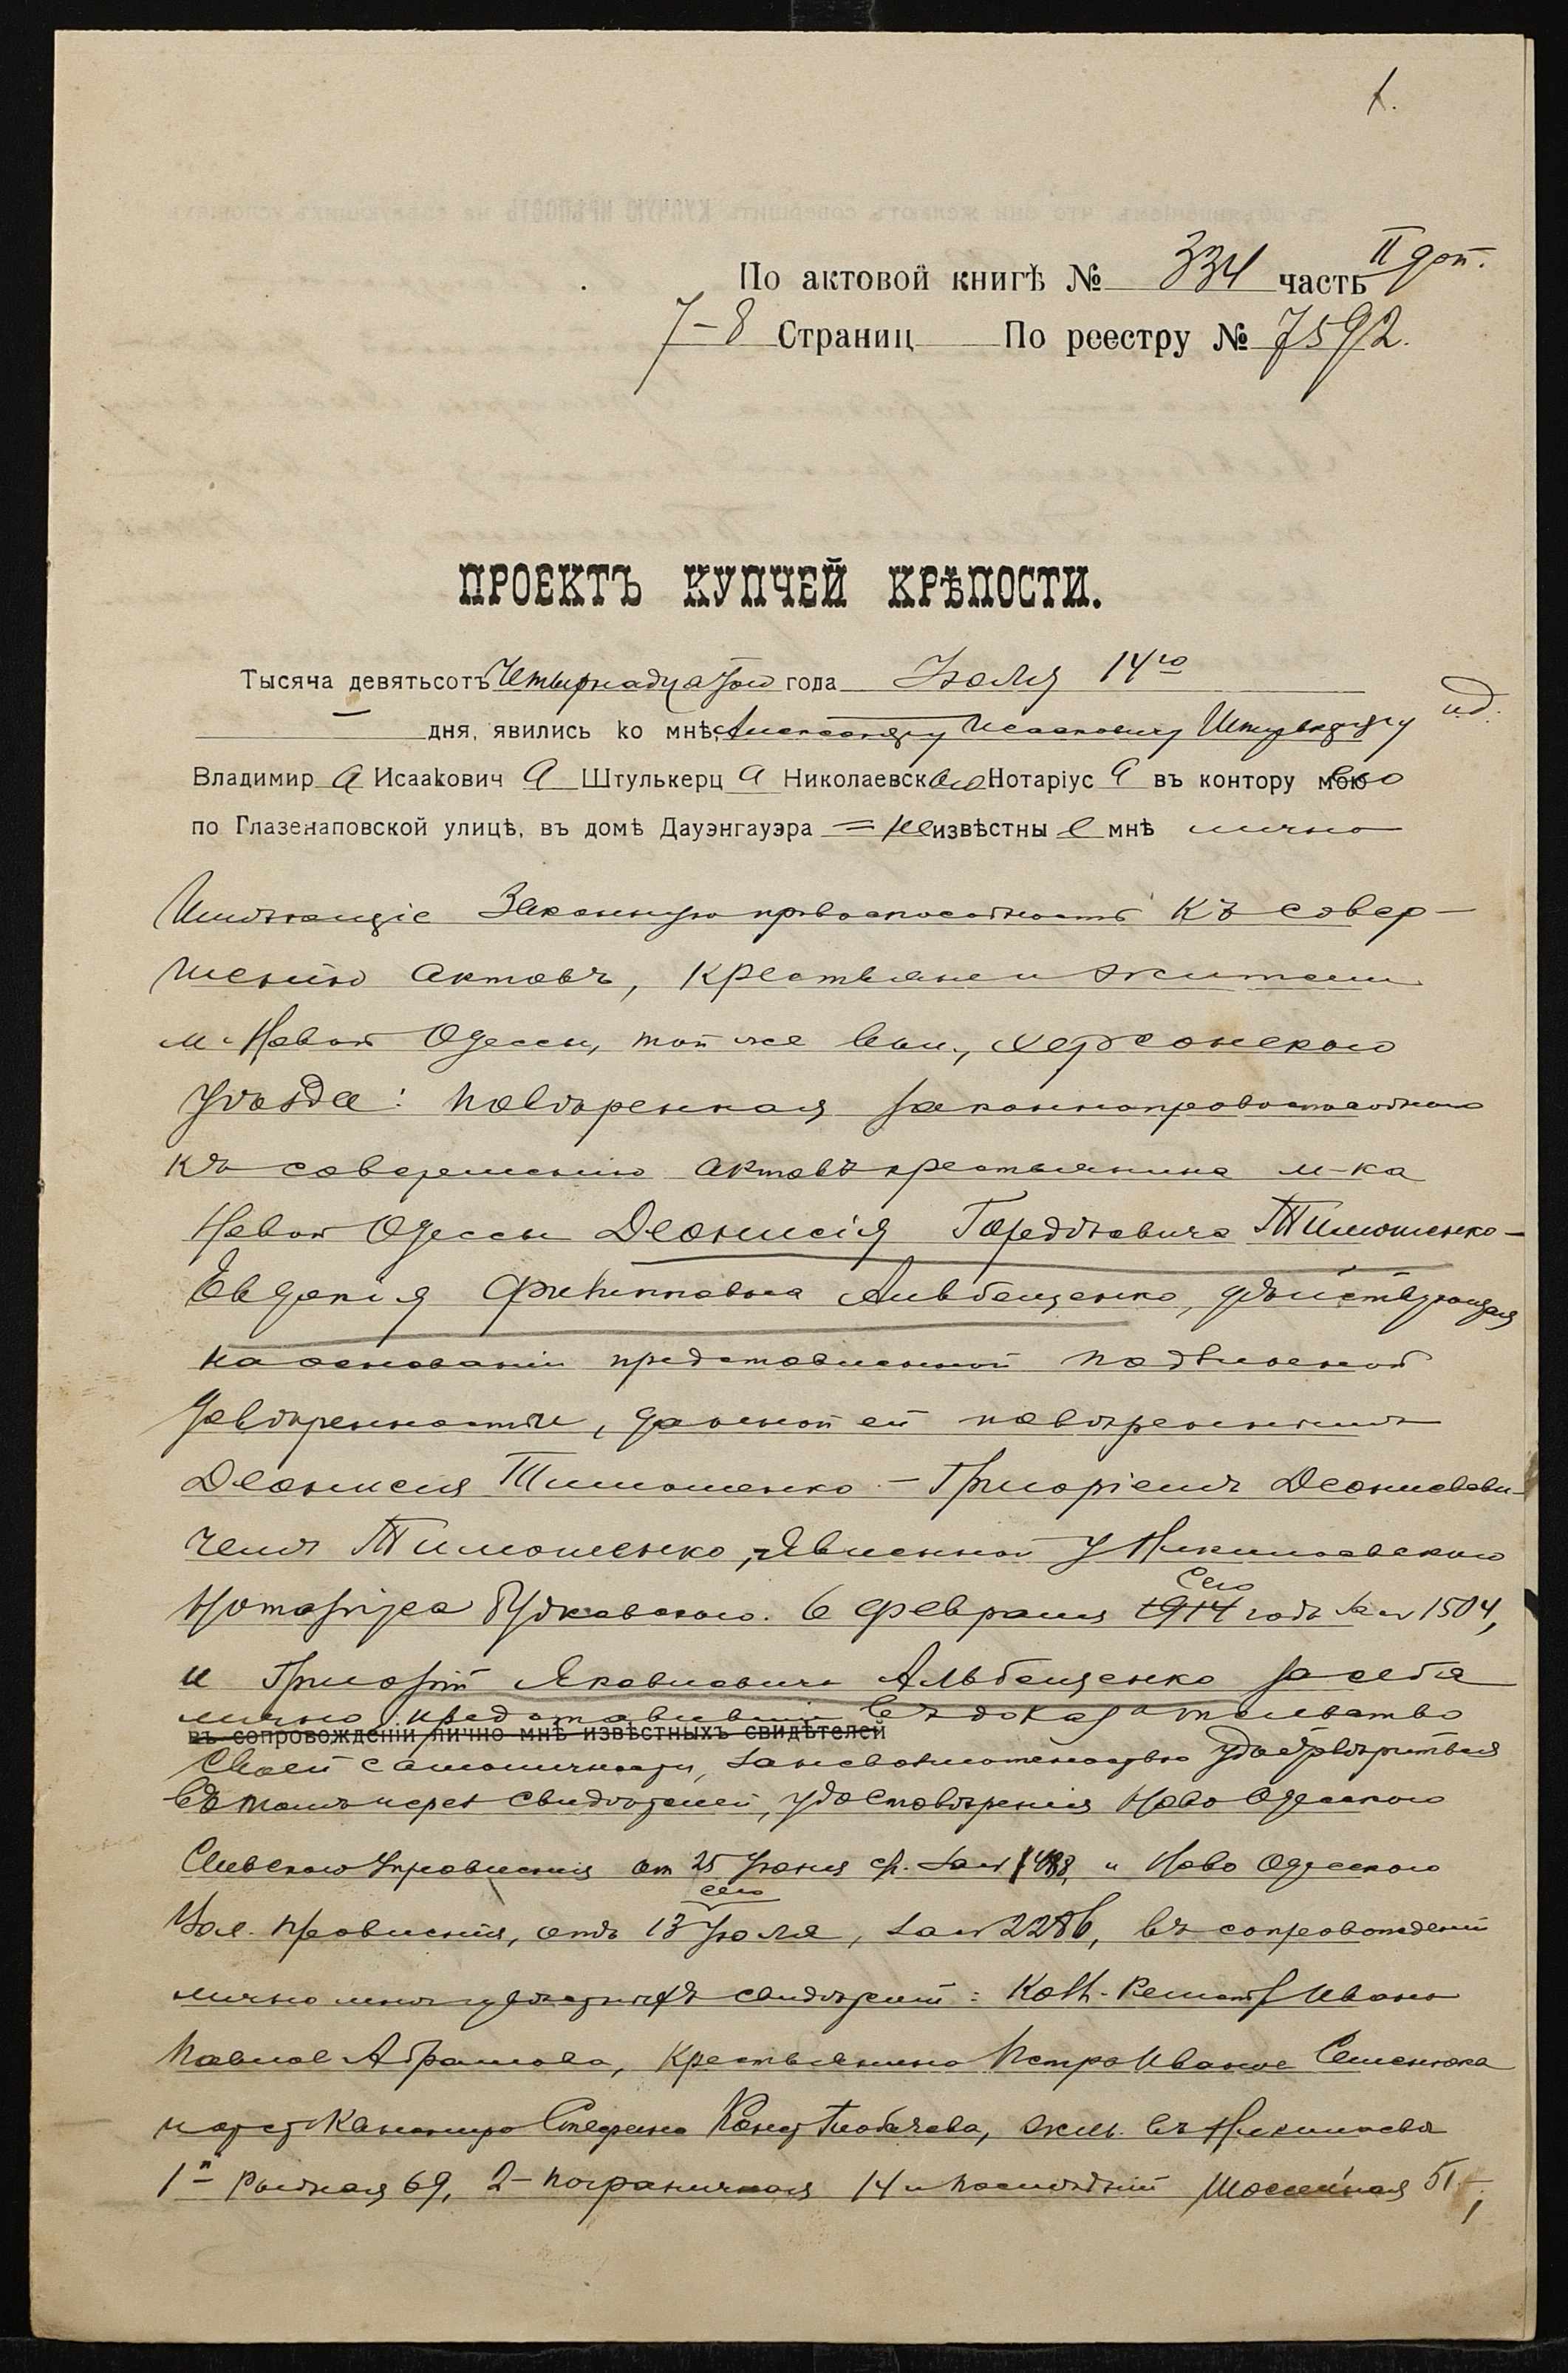 1.
По актовой книгѣ № 334 часть II доп.
7–8 Страниц По реестру № 7592.
ПРОЕКТЪ КУПЧЕЙ КРѢПОСТИ.
Тысяча девятьсотъ Четырнадцатого года Іюля 14го
дня, явились ко мнѣ, Александру Исааковичу Штулькерцу ид.
Владимир а Исаакович а Штулькерц а Николаевскаго Нотаріус а въ контору его
по Глазенаповской улицѣ, въ домѣ Дауэнгауэра = неизвѣстны е мнѣ лично
Имѣющіе законную правоспособность къ совер-
шенію актовъ, крестьяне и жители
м. Новой Одессы, той же вол., Херсонскаго
уѣзда: повѣренная законноправоспособнаго
къ совершенію актовъ крестьянина м-ка
Новой Одессы Деонисія Гордѣевича Тимошенко –
Евдокія Филипповна Альбещенко, дѣйствующая
на основаніи представленной подлинной
довѣренности, данной ей повѣреннымъ
Деонисія Тимошенко – Григоріемъ Деонисови-
чемъ Тимошенко, явленной у Николаевскаго
Нотаріуса 6 февраля 1914 сего года за № 1504,
и Григорій Яковлевичъ Альбещенко за себя
лично представившіе въ доказательство
въ сопровожденіи лично мнѣ извѣстныхъ свидѣтелей
своей самоличности, за невозможностью удостовѣриться
въ томъ черезъ свидѣтелей, удостовѣренія Ново Одесскаго
Сельскаго Управленія от 25 Іюня с.г. за № 1488, и Ново Одесскаго
Вол. Правленія, отъ 13 Іюля сего, за № 2286, въ сопровожденіи
лично мнѣ свидѣтелей: Колл. Регистр. Ивана
Павлов. Абрамова, крестьянина Петра Иванов. Семенюка
и Стефана Конст. жив. въ Николаевѣ
1й Рыбная 69, 2– Пограничная 14 и послѣдній Шоссейная 51,